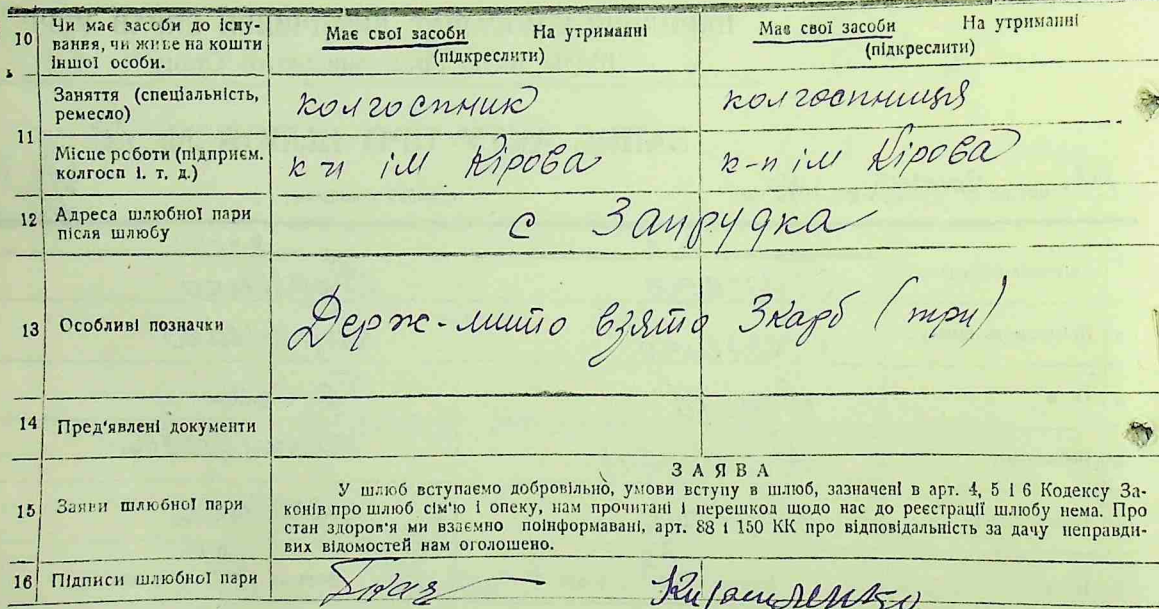 10 Чи має засоби до існу-
вання, чи живе на кошти
іншої особи.
Має свої засоби На утриманні
(підкреслити)
Має свої засоби На утриманні
(підкреслити)
11 Заняття (спеціальність,
ремесло)
колгоспник
колгоспниця
Місце роботи (підприєм.
колгосп і. т. д.)
к-п ім Кірова
к-п ім Кірова
12 Адреса шлюбної пари
після шлюбу
с Запрудка
13 Особливі позначки
Держ-мито взято 3карб (три)
14 Пред'явлені документи
15 Заяви шлюбної пари
ЗАЯВА
У шлюб вступаємо добровільно, умови вступу в шлюб, зазначені в арт. 4, 5 і 6 Кодексу За-
конів про шлюб сім'ю і опеку, нам прочитані і перешкод щодо нас до реєстрації шлюбу нема. Про
стан здоров'я ми взаємно поінформавані, арт. 88 і 150 КК про відповідальність за дачу неправди-
вих відомостей нам оголошено.
16 Підписи шлюбної пари